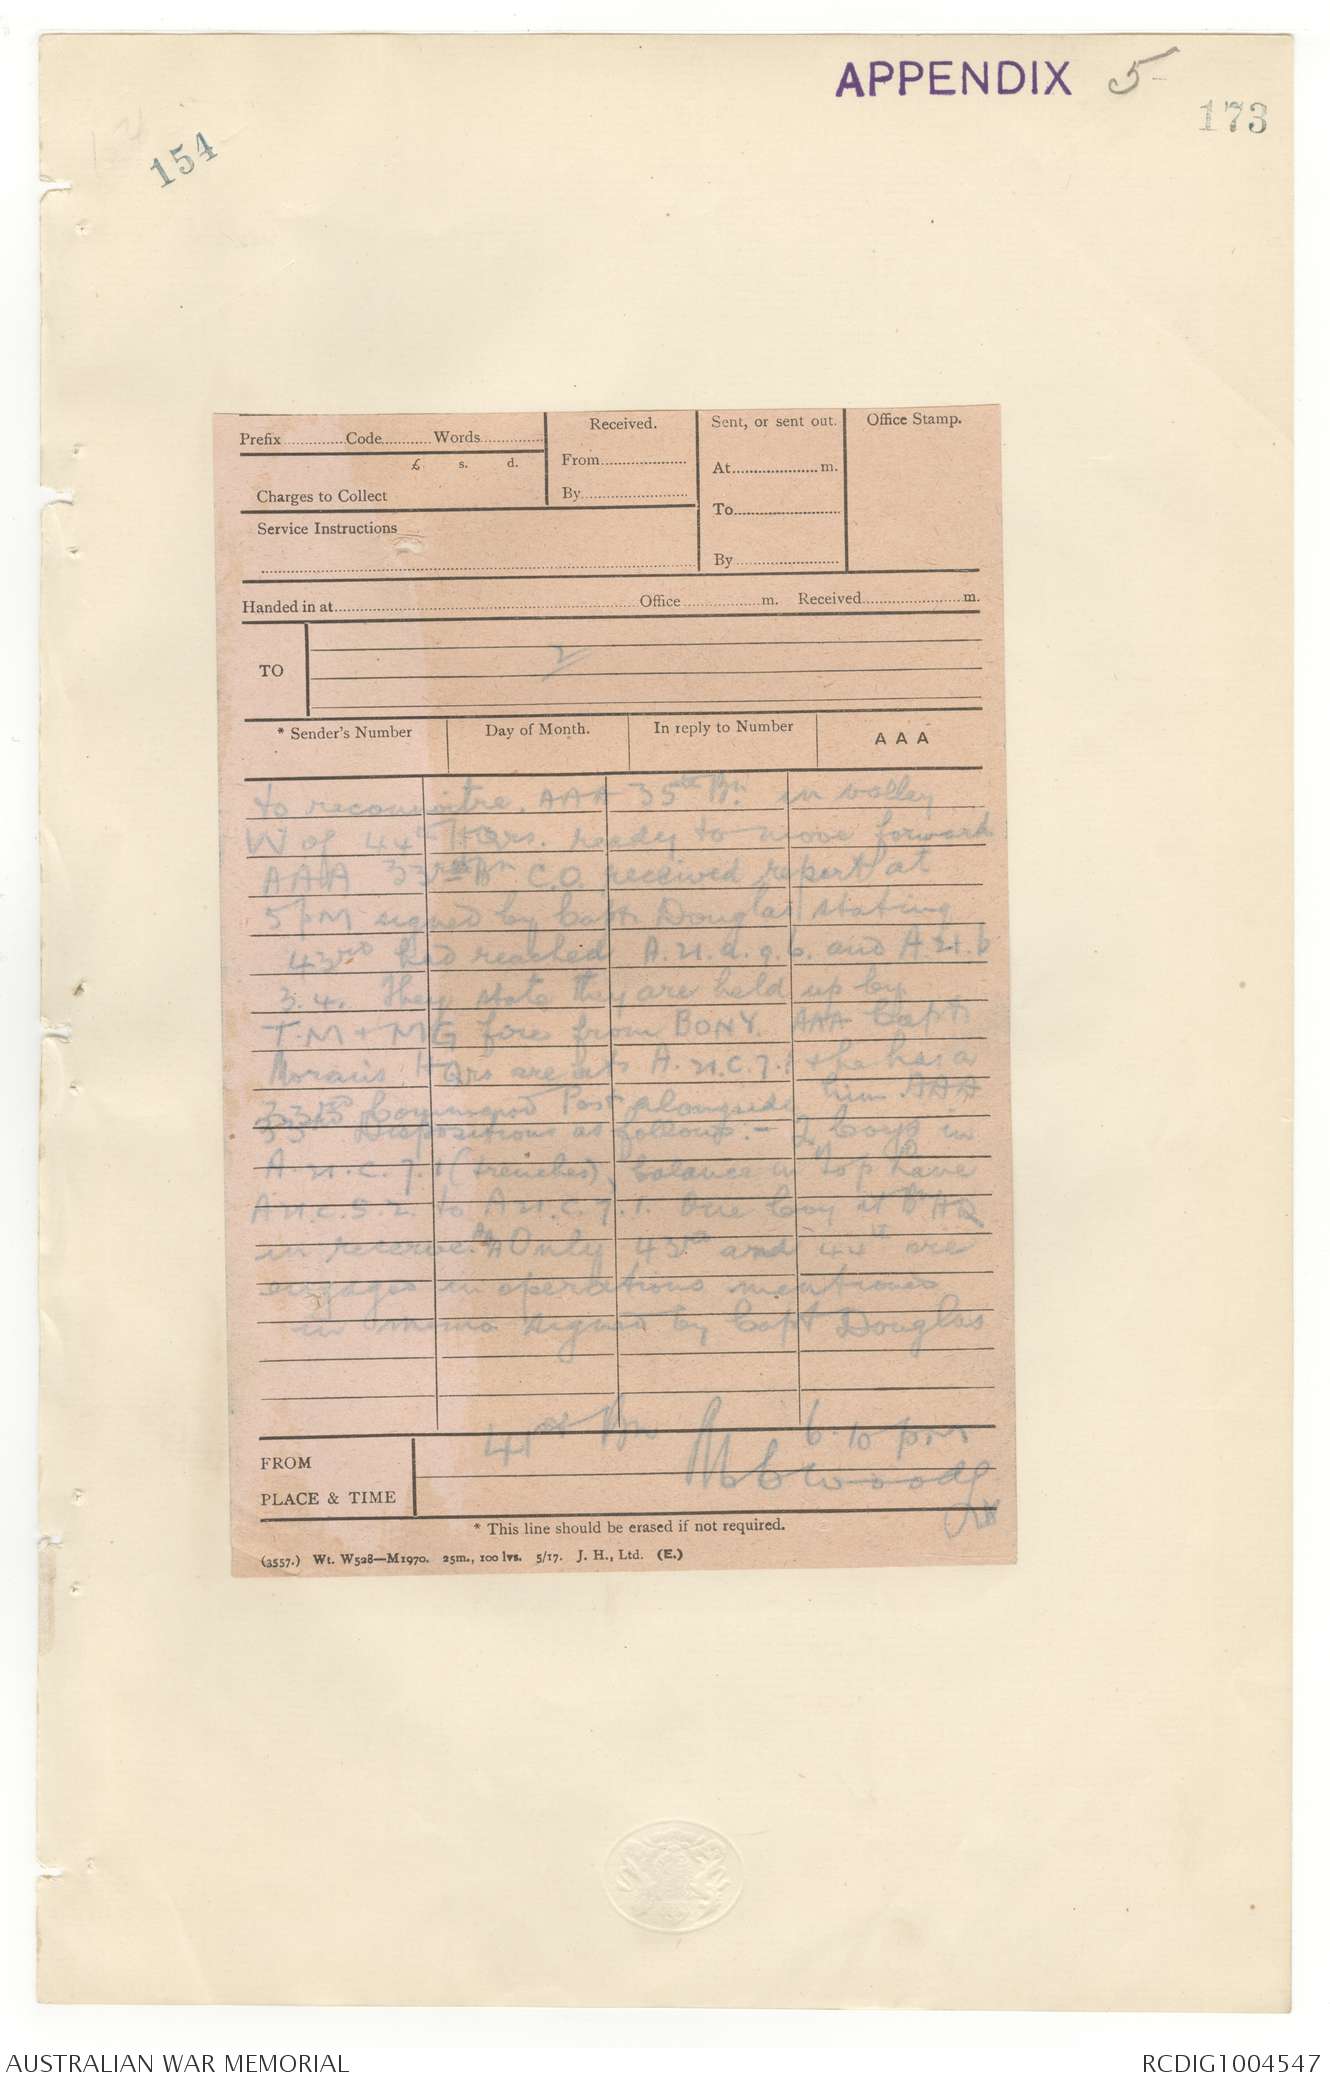 APPENDIX 5
173
154
Prefix............Code..........Words............
£ s. d.
Charges to Collect
Service Instructions
Received.
From
By
Sent, or sent out.
At....................m.
To
By
Office Stamp.
Handed in at............Office............m. Received............m.
TO
2
* Sender's Number
Day of Month.
In reply to Number
AAA
to reconnoitre. AAA 35th Bn. in valley
W of 44th HQrs. ready to move forward
AAA 33rd Bn C.O. received report at
5 pm signed by Capt. Douglas stating
43rd had reached A.21.a.9.6. and A.21.b
3.4. They state they are held up by
T.M + MG fire from BONY. AAA Capt
HQrs are at A.21.c.7.1 & he has a
33rd Command Post alongside him AAA
33rd Dispositions as follows:- 2 Coys in
A.21.c.7.1 (trenches), balance in Top Lane
A21c.5.2. to A21.c.7.1. One Coy at Bn HQ
in reserve. AAA Only 43rd and 44th are
engaged in operations mentioned
in memo signed by Capt Douglas
FROM
PLACE & TIME
41st Bn
6.10 pm
* This line should be erased if not required.
(3557.) Wt. W528—M1970. 25m., 100 lvs. 5/17. J. H., Ltd. (E.)
AUSTRALIAN WAR MEMORIAL
RCDIG1004547